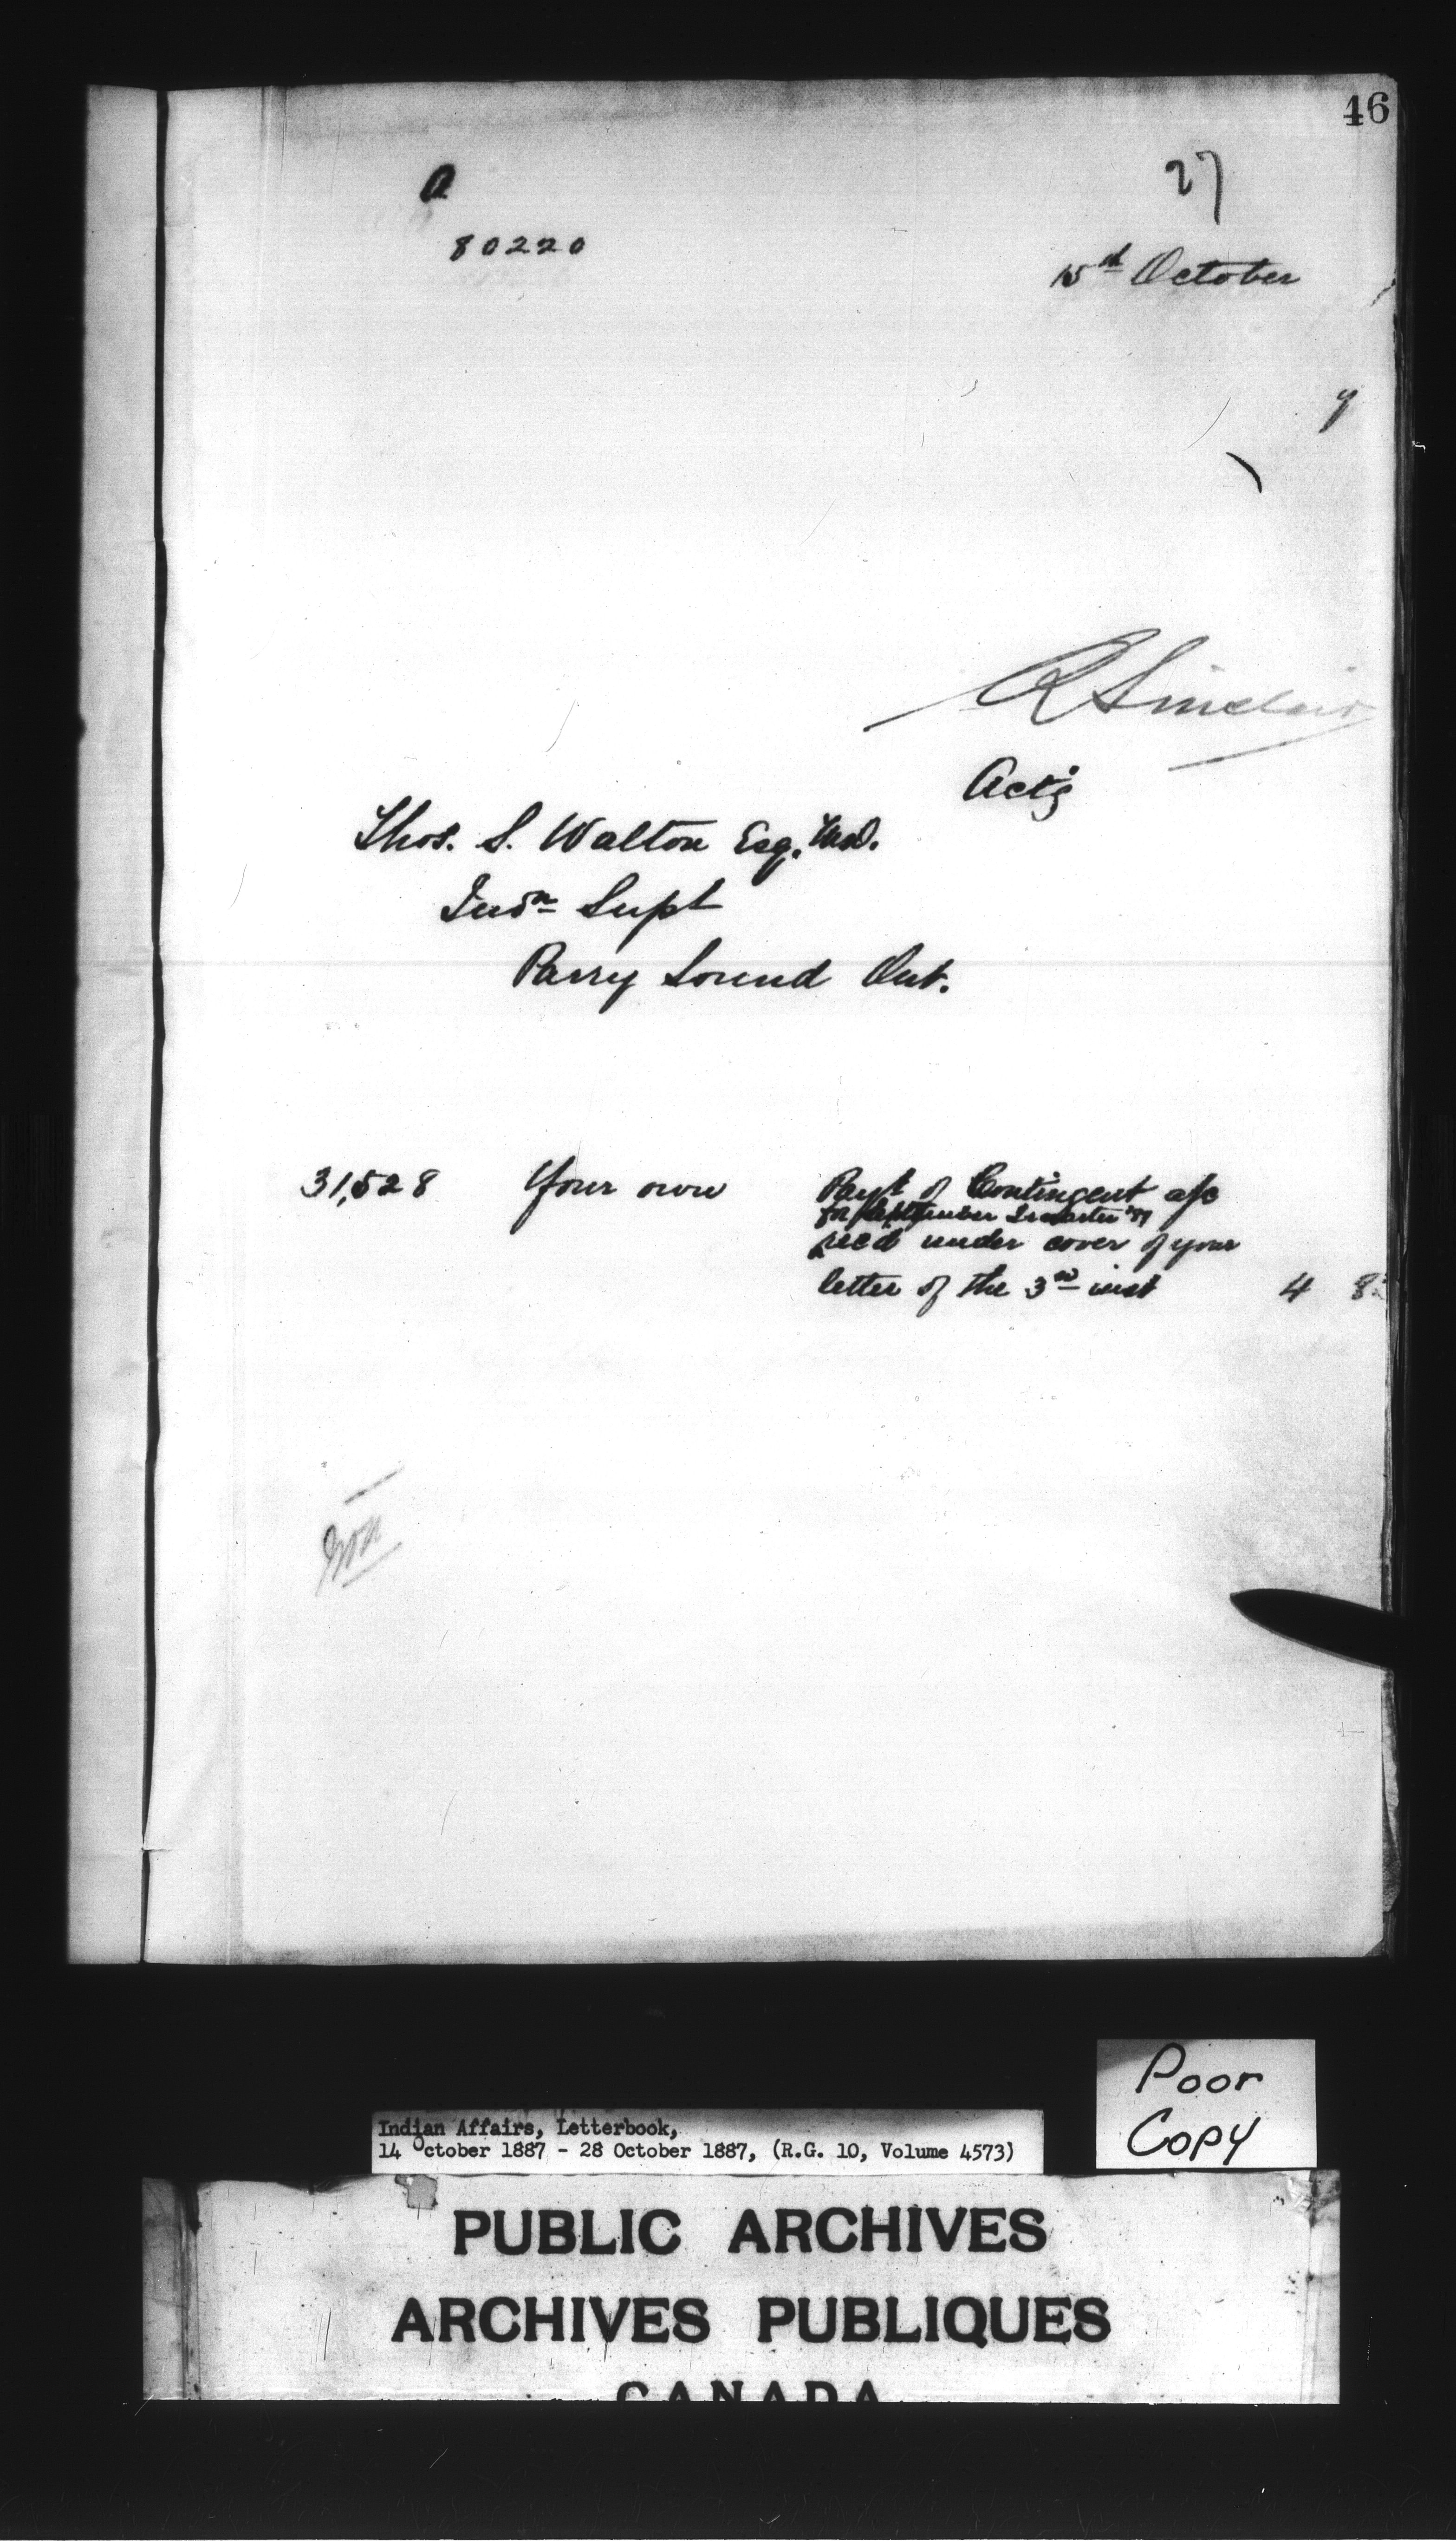 46
27
a
80220
15th October
y
R Sinclair
Actg
Thos. S. Walton Esq. M.D.
Indn Supt
Parry Sound Ont.
31,528 Your own Payt of Contingent a/c
for September Quarter '87
rec'd under cover of your
letter of the 3rd inst 4 8
Poor
Copy
Indian Affairs, Letterbook,
14 October 1887 - 28 October 1887, (R.G. 10, Volume 4573)
PUBLIC ARCHIVES
ARCHIVES PUBLIQUES
CANADA